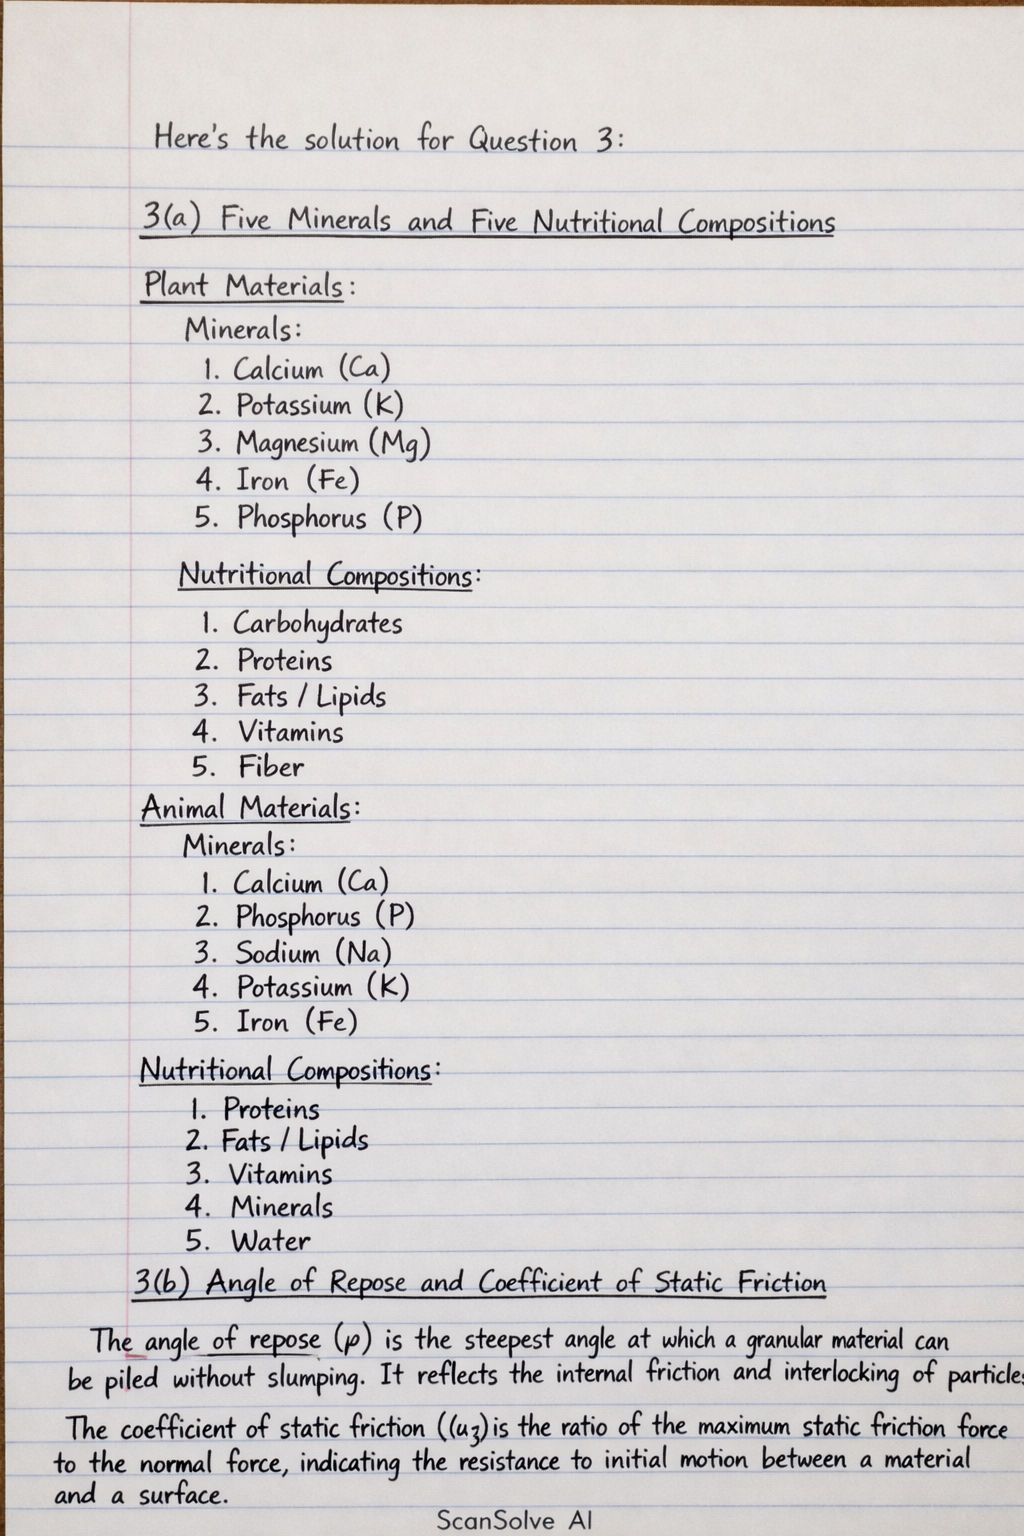 Here's the solution for Question 3:
3(a) Five Minerals and Five Nutritional Compositions
Plant Materials:
Minerals:
1. Calcium (Ca)
2. Potassium (K)
3. Magnesium (Mg)
4. Iron (Fe)
5. Phosphorus (P)
Nutritional Compositions:
1. Carbohydrates
2. Proteins
3. Fats / Lipids
4. Vitamins
5. Fiber
Animal Materials:
Minerals:
1. Calcium (Ca)
2. Phosphorus (P)
3. Sodium (Na)
4. Potassium (K)
5. Iron (Fe)
Nutritional Compositions:
1. Proteins
2. Fats / Lipids
3. Vitamins
4. Minerals
5. Water
3(b) Angle of Repose and Coefficient of Static Friction
The angle of repose (ρ) is the steepest angle at which a granular material can
be piled without slumping. It reflects the internal friction and interlocking of particles
The coefficient of static friction ((uʒ) is the ratio of the maximum static friction force
to the normal force, indicating the resistance to initial motion between a material
and a surface.
ScanSolve AI